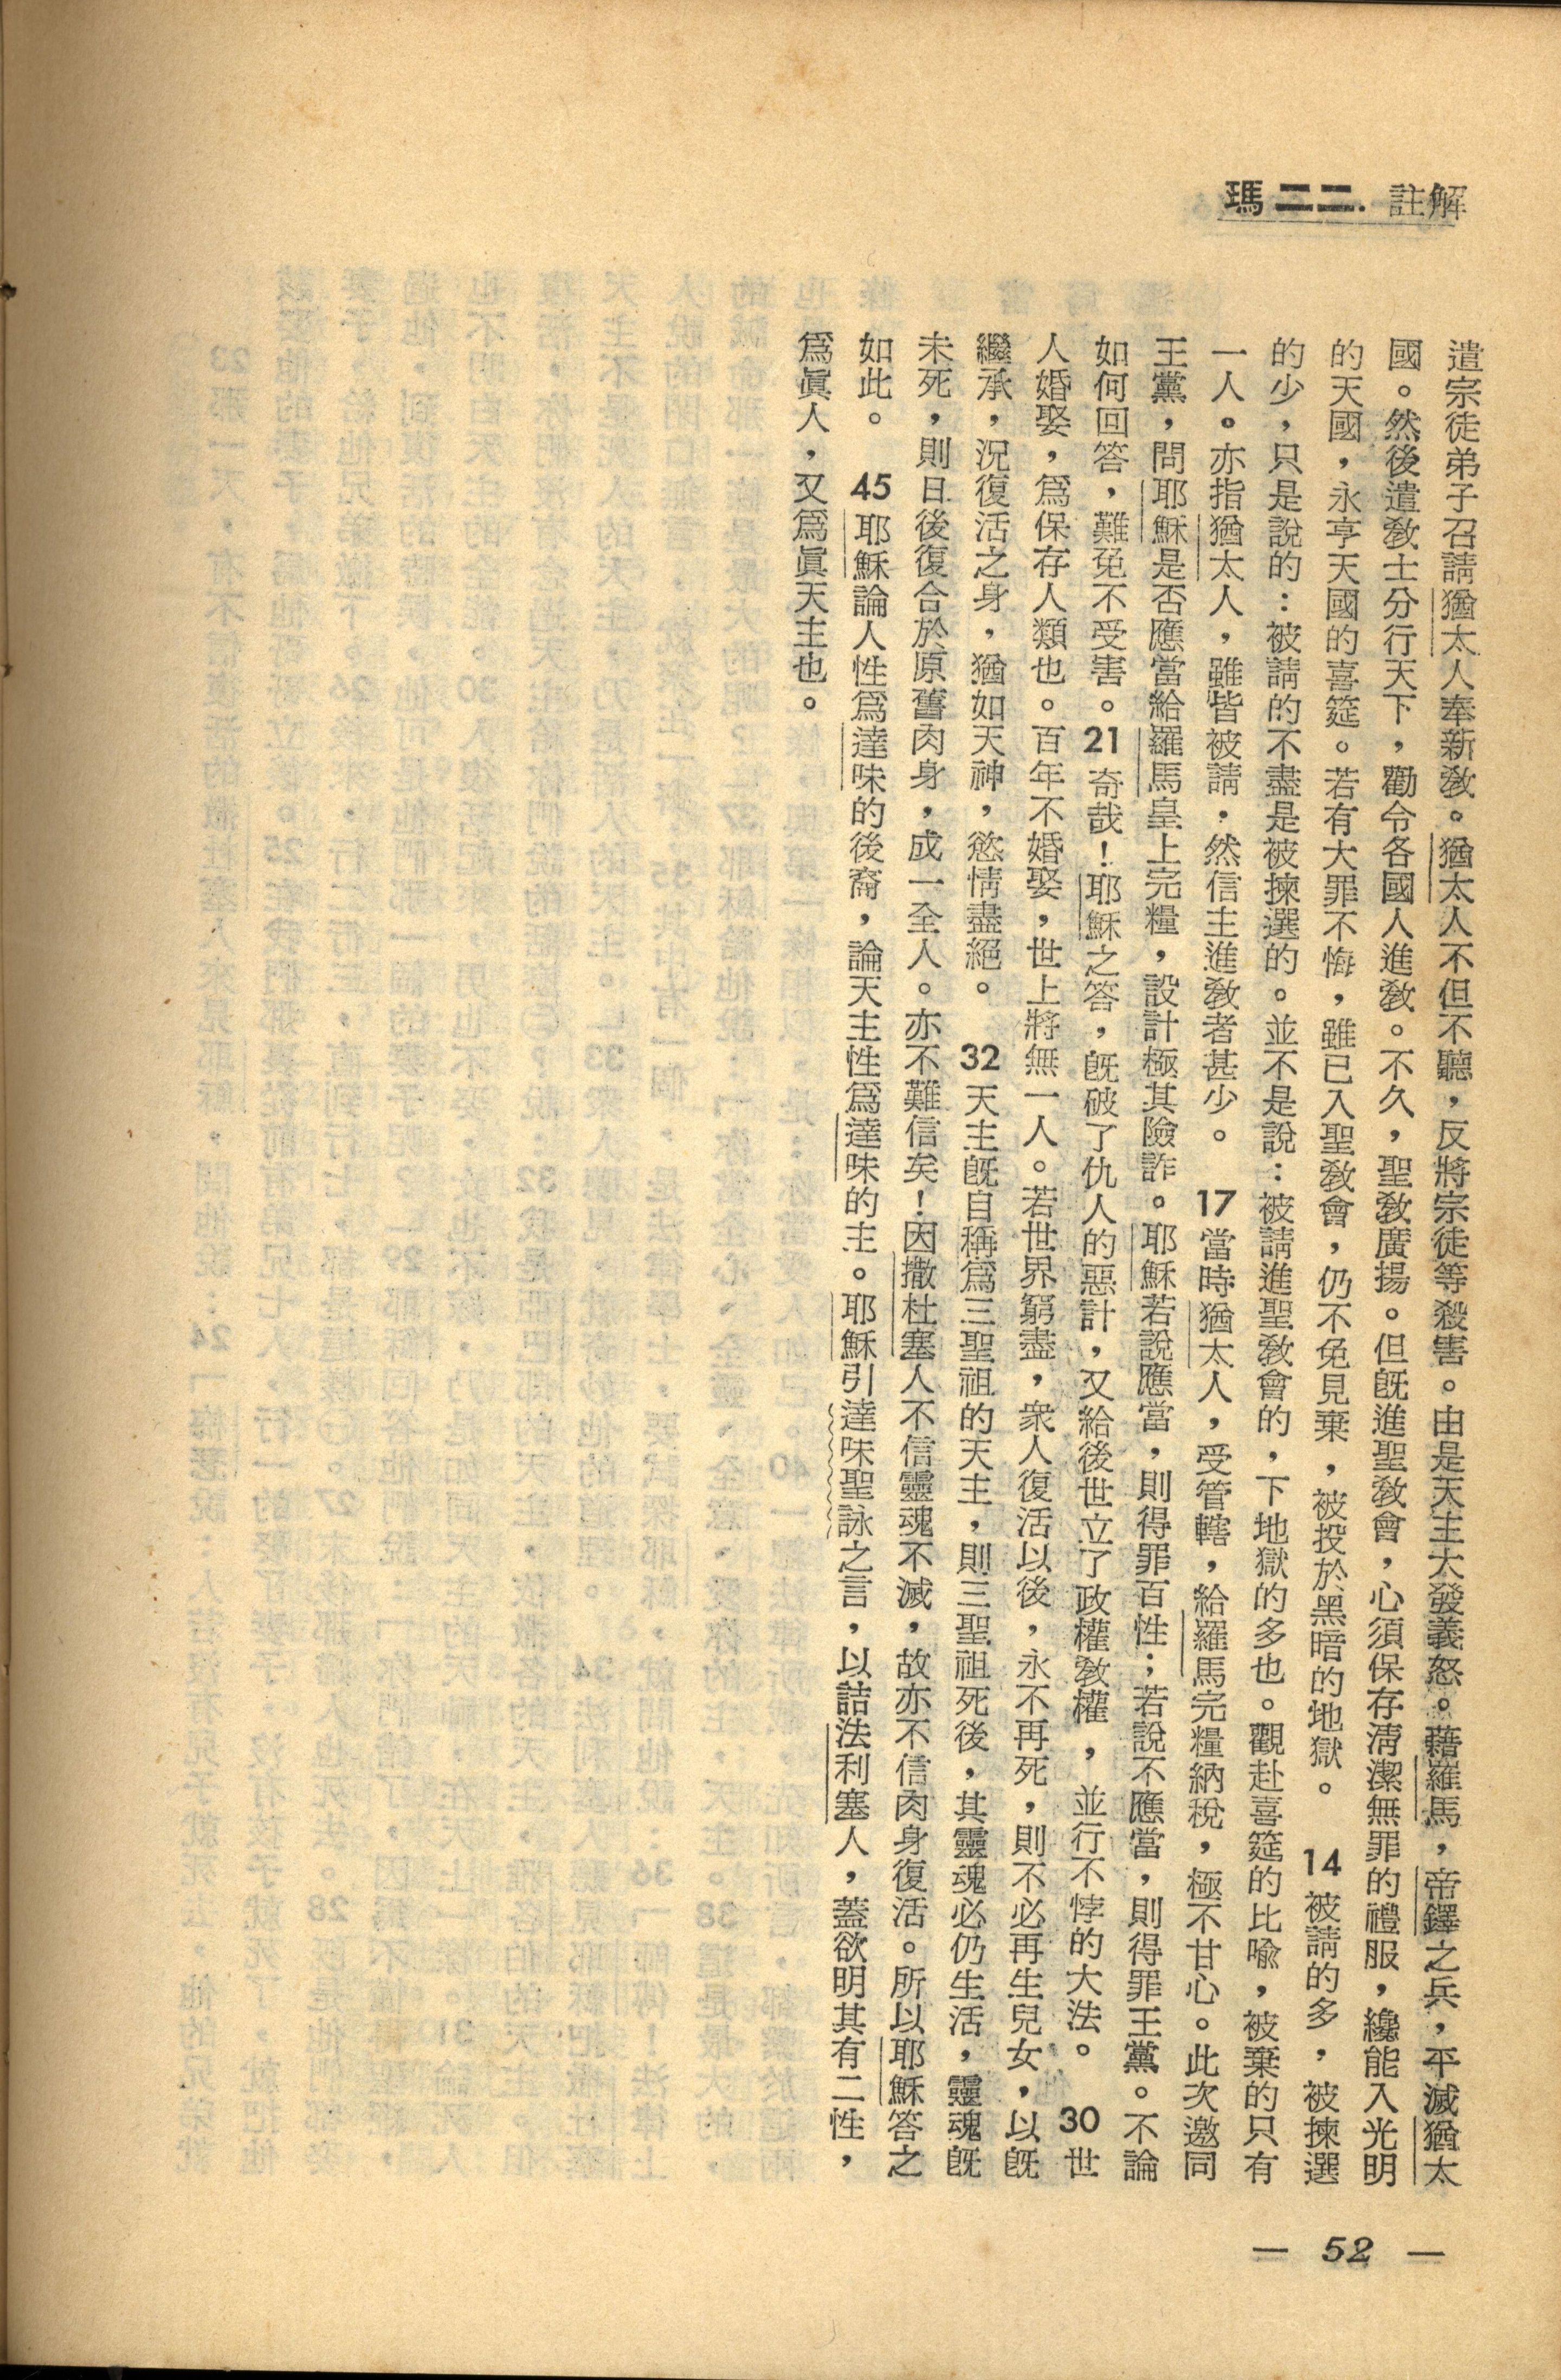 瑪二二. 註解
遣宗徒弟子召請猶太人奉新教。猶太人不但不聽，反將宗徒等殺害。由是天主大發義怒。藉羅馬，帝鐸之兵，平滅猶太
國。然後遣教士分行天下，勸令各國人進教。不久，聖教廣揚。但旣進聖教會，心須保存淸潔無罪的禮服，纔能入光明
的天國，永亨天國的喜筵。若有大罪不悔，雖已入聖教會，仍不免見棄，被投於黑暗的地獄。 14 被請的多，被揀選
的少，只是說的：被請的不盡是被揀選的。並不是說：被請進聖教會的，下地獄的多也。觀赴喜筵的比喩，被棄的只有
一人。亦指猶太人，雖皆被請，然信主進教者甚少。 17 當時猶太人，受管轄，給羅馬完糧納稅，極不甘心。此次邀同
王黨，問耶穌是否應當給羅馬皇上完糧，設計極其險詐。耶穌若說應當，則得罪百性；若說不應當，則得罪王黨。不論
如何回答，難免不受害。21 奇哉！耶穌之答，旣破了仇人的惡計，又給後世立了政權教權，並行不悖的大法。 30 世
人婚娶，爲保存人類也。百年不婚娶，世上將無一人。若世界窮盡，衆人復活以後，永不再死，則不必再生兒女，以旣
繼承，況復活之身，猶如天神，慾情盡絕。 32 天主旣自稱爲三聖祖的天主，則三聖祖死後，其靈魂必仍生活，靈魂旣
未死，則日後復合於原舊肉身，成一全人。亦不難信矣！因撒杜塞人不信靈魂不滅，故亦不信肉身復活。所以耶穌答之
如此。 45 耶穌論人性爲達味的後裔，論天主性爲達味的主。耶穌引達味聖詠之言，以詰法利塞人，蓋欲明其有二性，
爲眞人，又爲眞天主也。
— 52 —